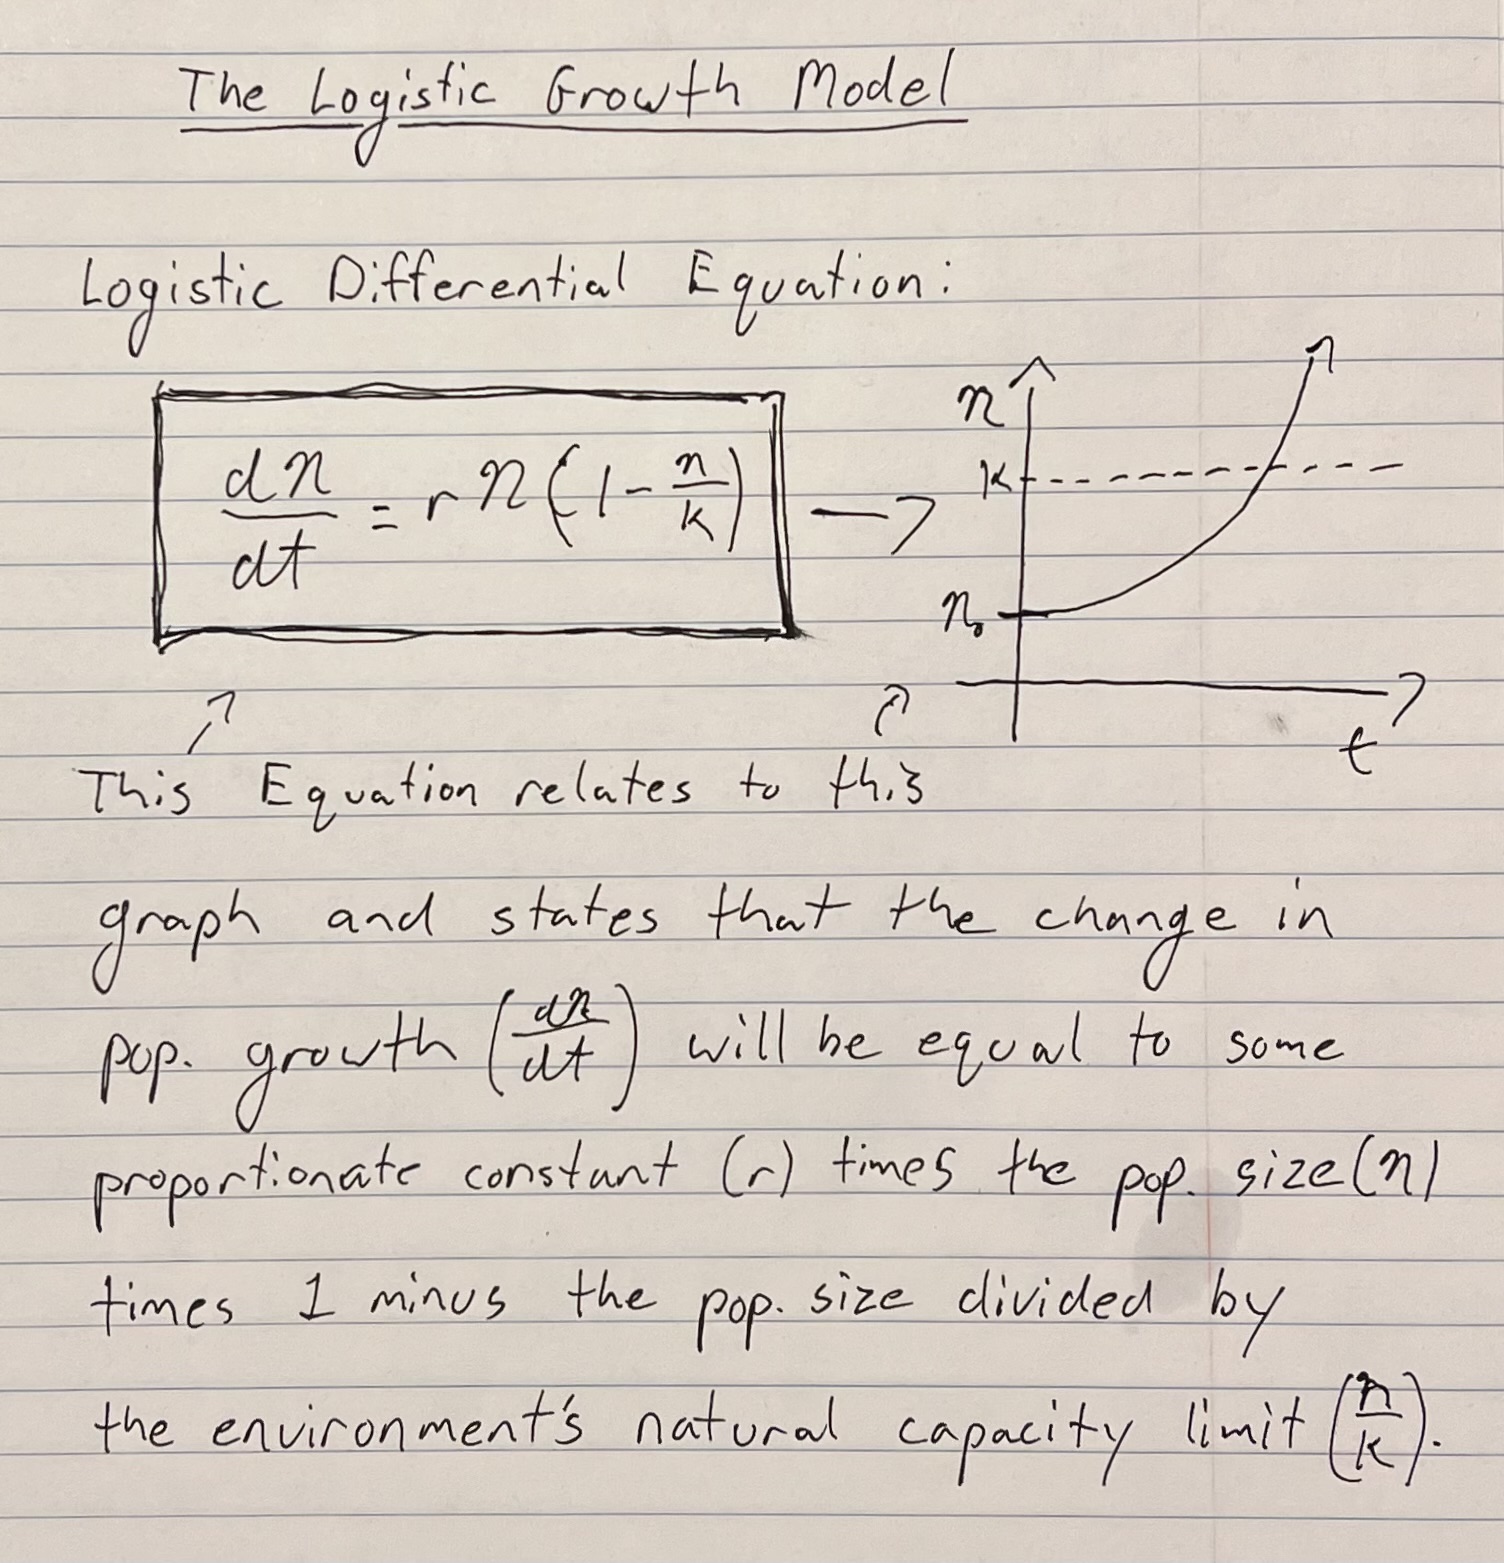 The Logistic Growth Model
Logistic Differential Equation:
dn/dt = rn(1 - n/k) →
n
k
n₀
t
This Equation relates to this
graph and states that the change in
pop. growth (dn/dt) will be equal to some
proportionate constant (r) times the pop. size (n)
times 1 minus the pop. size divided by
the environment's natural capacity limit (n/k).